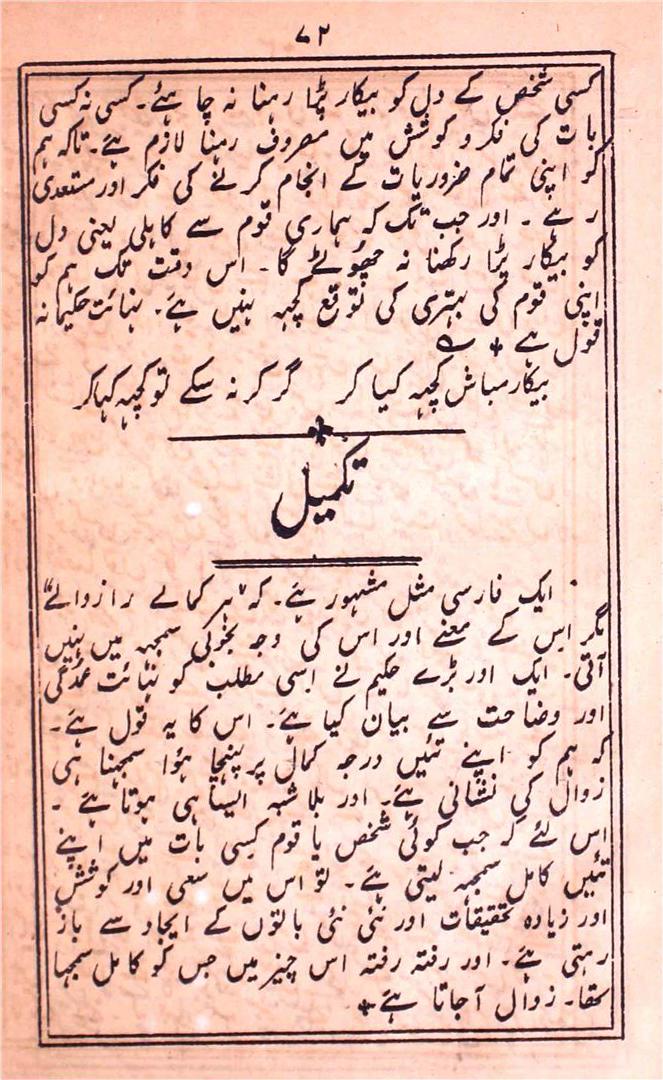 ۷۲
کسی شخص کے دل کو بیکار پڑا رہنا نہ چاہئے۔ کسی نہ کسی
بات کی فکر و کوشش میں مصروف رہنا لازم ہے۔ تاکہ ہم
کو اپنی تمام ضروریات کے انجام کرنے کی فکر اور مستعدی
رہے۔ اور جب تک کہ ہماری قوم سے کاہلی یعنی دل
کو بیکار پڑا رکھنا نہ چھوٹے گا۔ اس وقت تک ہم کو
اپنی قوم کی بہتری کی توقع کچہہ نہیں ہے۔ نہائت حکیمانہ
قول ہے +
بیکار مباش کچہہ کیا کر گر کر نہ سکے تو کچہہ کہا کر
تکمیل
ایک فارسی مثل مشہور ہے۔ کہ "ہر کمالے را زوالے"
مگر اس کے معنے اور اس کی وجہ بخوبی سمجہہ میں نہیں
آتی۔ ایک اور بڑے حکیم نے اسی مطلب کو نہائت عمدگی
اور وضاحت سے بیان کیا ہے۔ اس کا یہ قول ہے۔
کہ ہم کو اپنے تئیں درجہ کمال پر پہنچا ہؤا سمجہنا ہی
زوال کی نشانی ہے۔ اور بلا شبہ ایسا ہی ہوتا ہے۔
اس لئے کہ جب کوئی شخص یا قوم کسی بات میں اپنے
تئیں کامل سمجہہ لیتی ہے۔ تو اس میں سعی اور کوشش
اور زیادہ تحقیقات اور نئی نئی باتوں کے ایجاد سے باز
رہتی ہے۔ اور رفتہ رفتہ اس چیز میں جس کو کامل سمجہا
تھا۔ زوال آجاتا ہے +